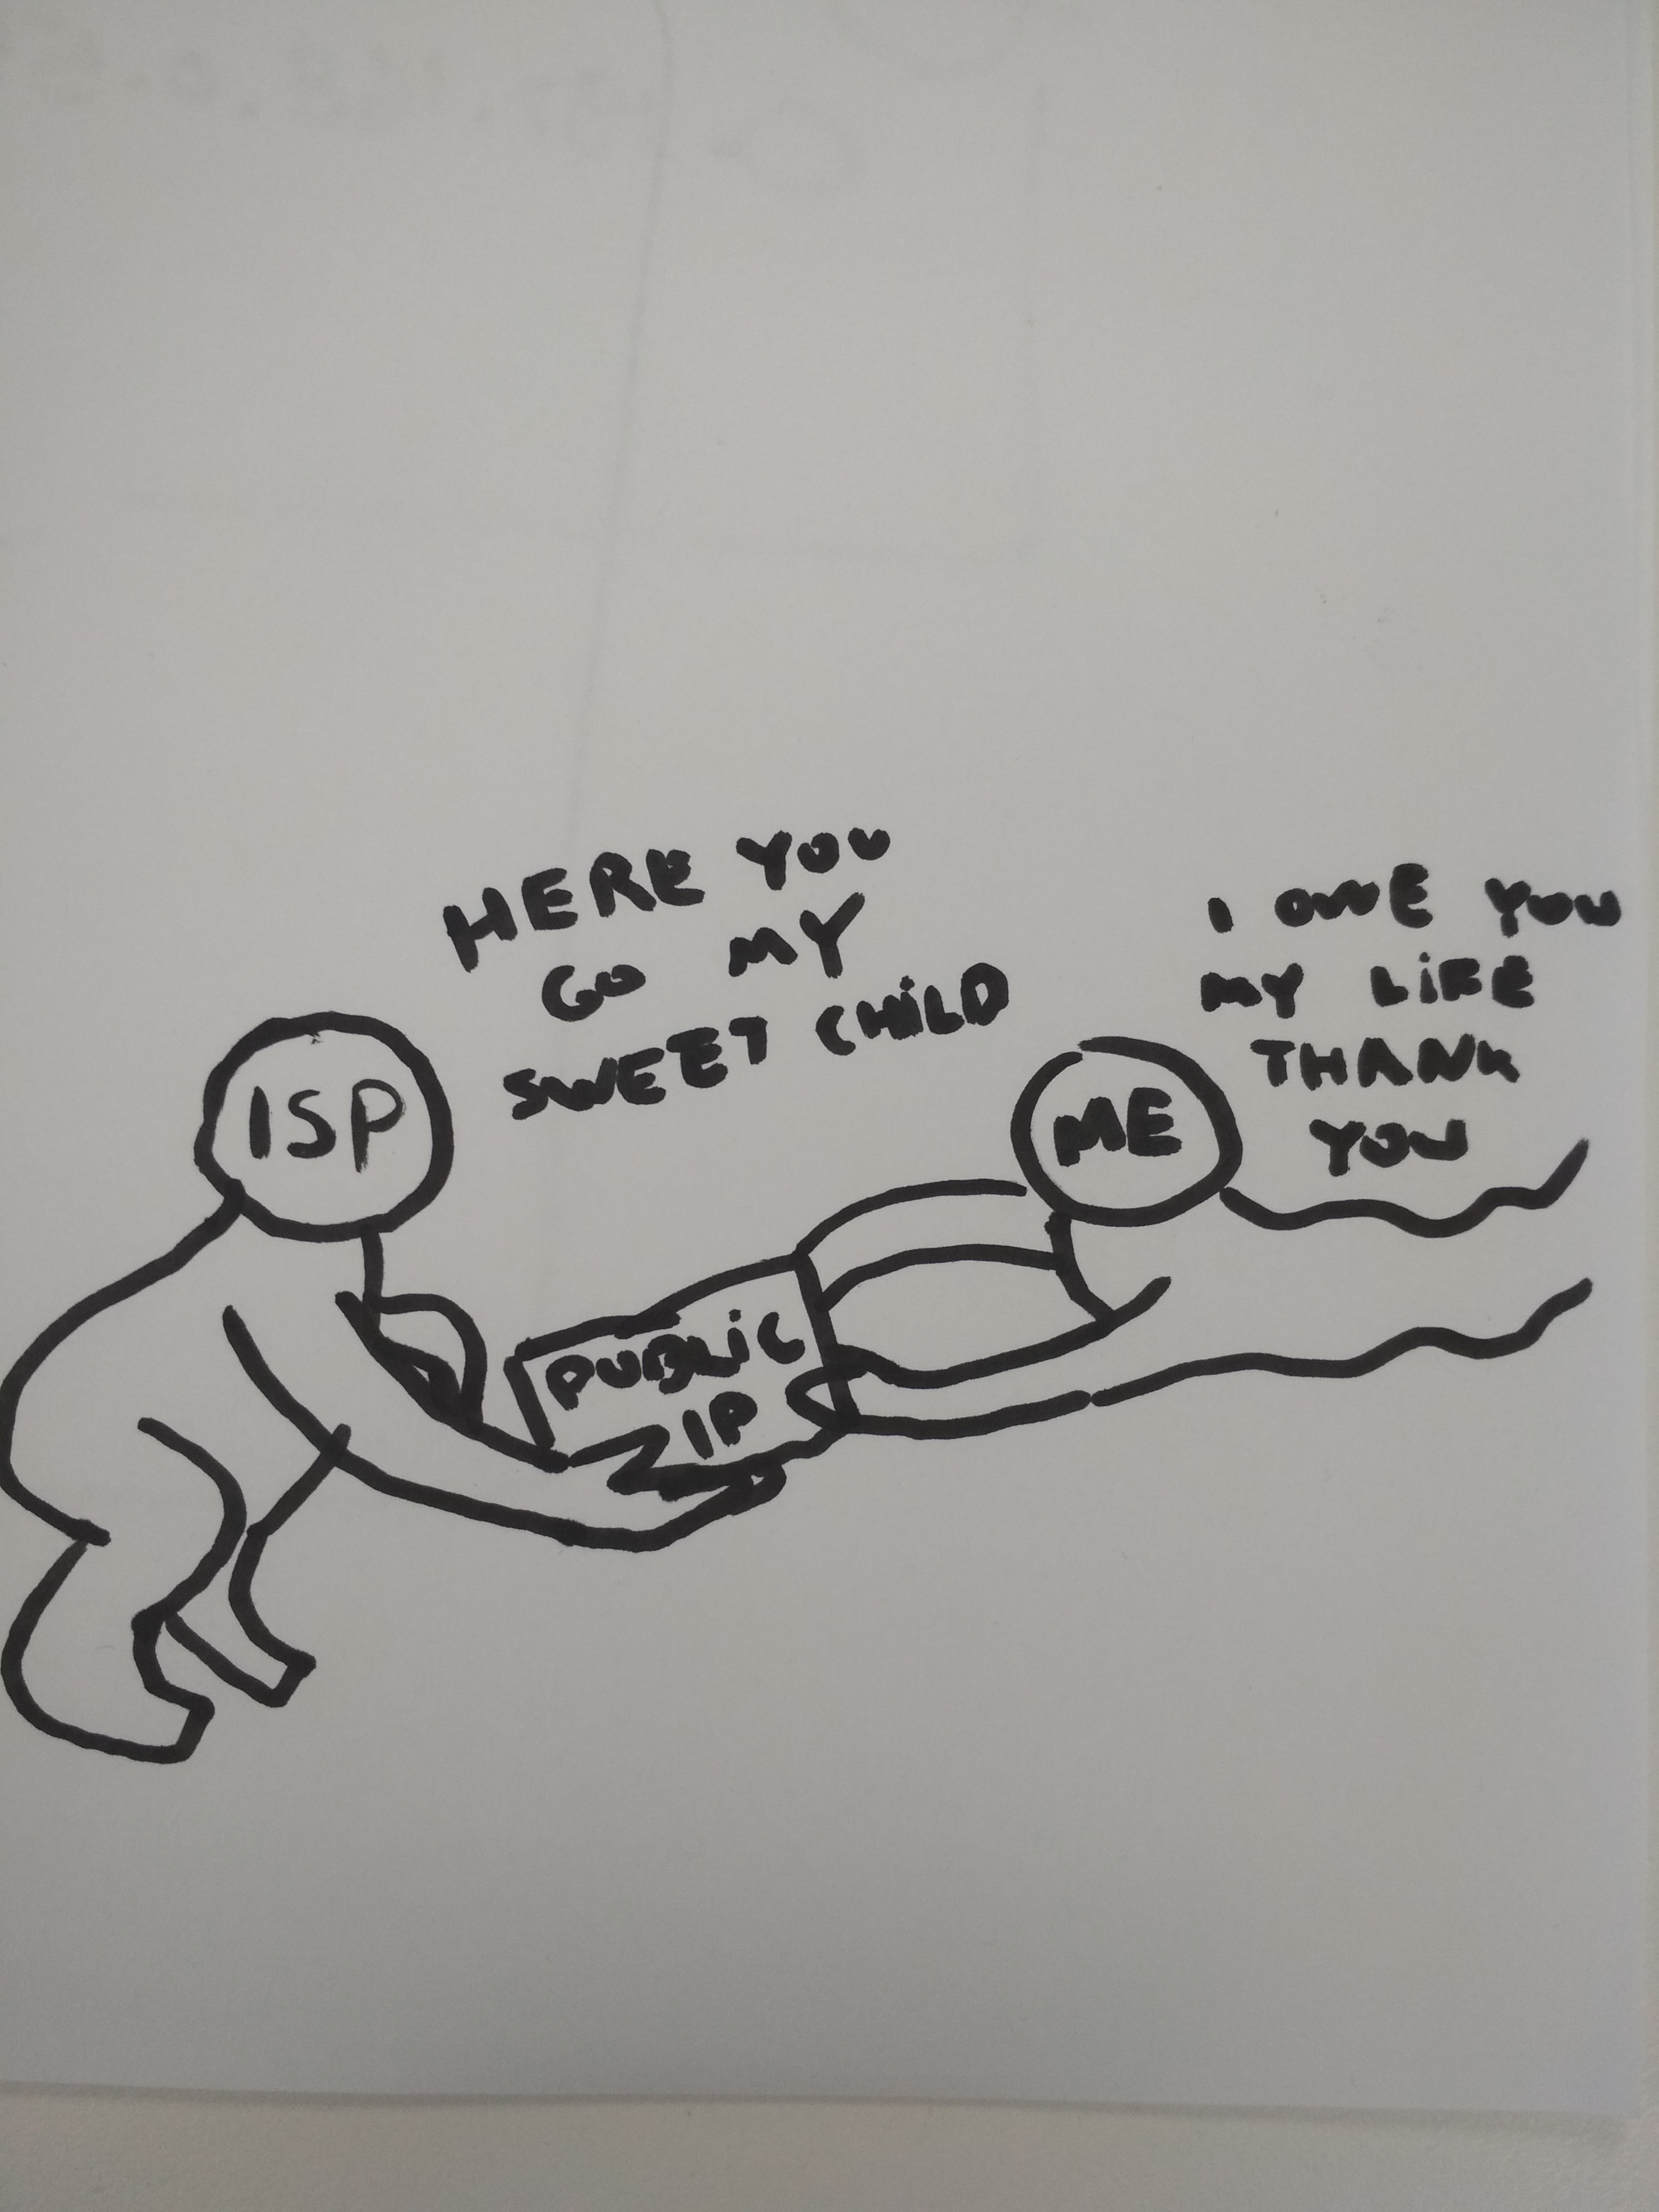 HERE YOU
GO MY
SWEET CHILD
I OWE YOU
MY LIFE
THANK
YOU
ISP
ME
PUBLIC
IP